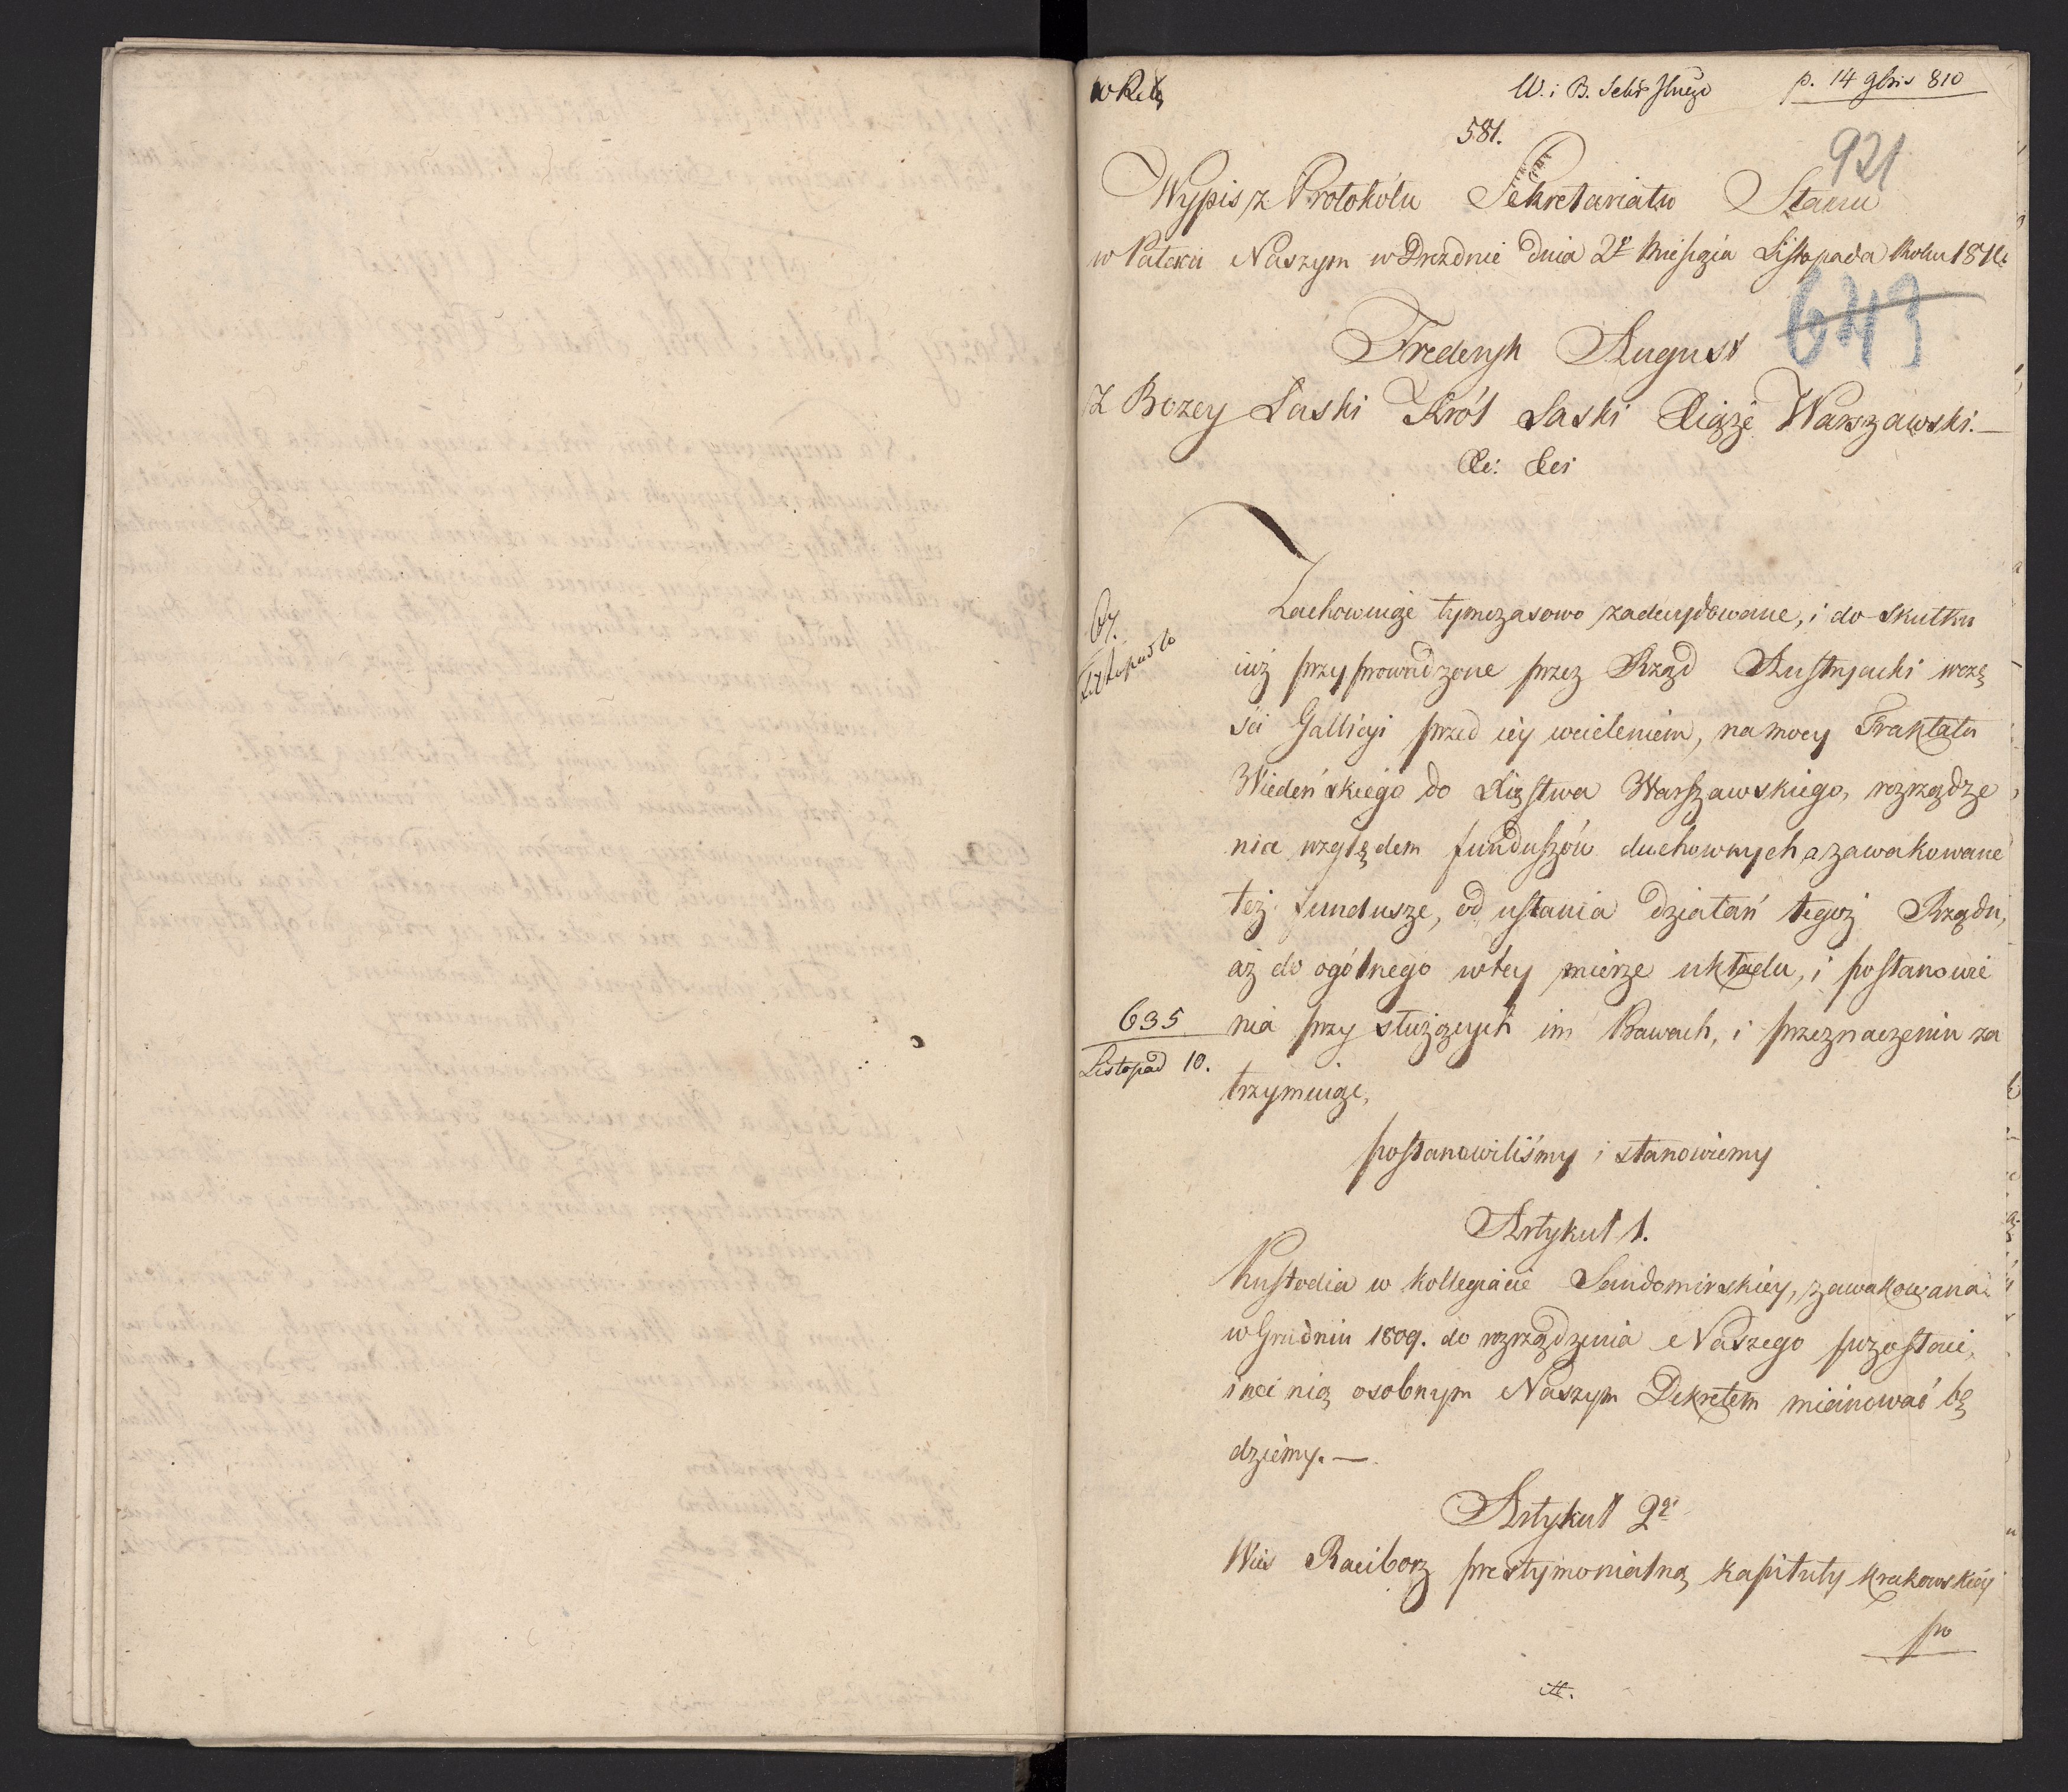 p. 14 9bris 810
581.
921
Wypis z Protokółu Sekretariatu Stanu
w Pałacu Naszym w Dreźnie dnia 2º Miesiąca Listopada Roku 1810.
643
Frederyk August
Z Bozey Łaski Król Saski Xiąże Warszawski.—
&c: &c:
Zachowuiąc tymczasowo zadecydowane, i do skutku
67.
Listopad 10
iuż przyprowadzone przez Rząd Austryacki w czę
ści Gallicyi przed iey wcieleniem, na mocy Traktatu
Wiedeńskiego do Xięstwa Warszawskiego, rozrządze
nia względem funduszów duchownych, a zawakowane
też fundusze, od ustania działań tegoż Rządu,
aż do ogólnego w tey mierze układu, i postanowie
635
Listopad 10.
nia przy służących im Prawach, i przeznaczeniu za
trzymuiąc,
postanowiliśmy i stanowiemy
Artykuł 1.
Kustodia w Kollegiacie Sandomirskiey, zawakowana
w Grudniu 1809. do rozrządzenia Naszego pozostaie,
i na nią osobnym Naszym Dekretem mianować bę
dziemy.—
Artykuł 2gi
Wieś Raciborz prestymonialną Kapituły Krakowskiey
po